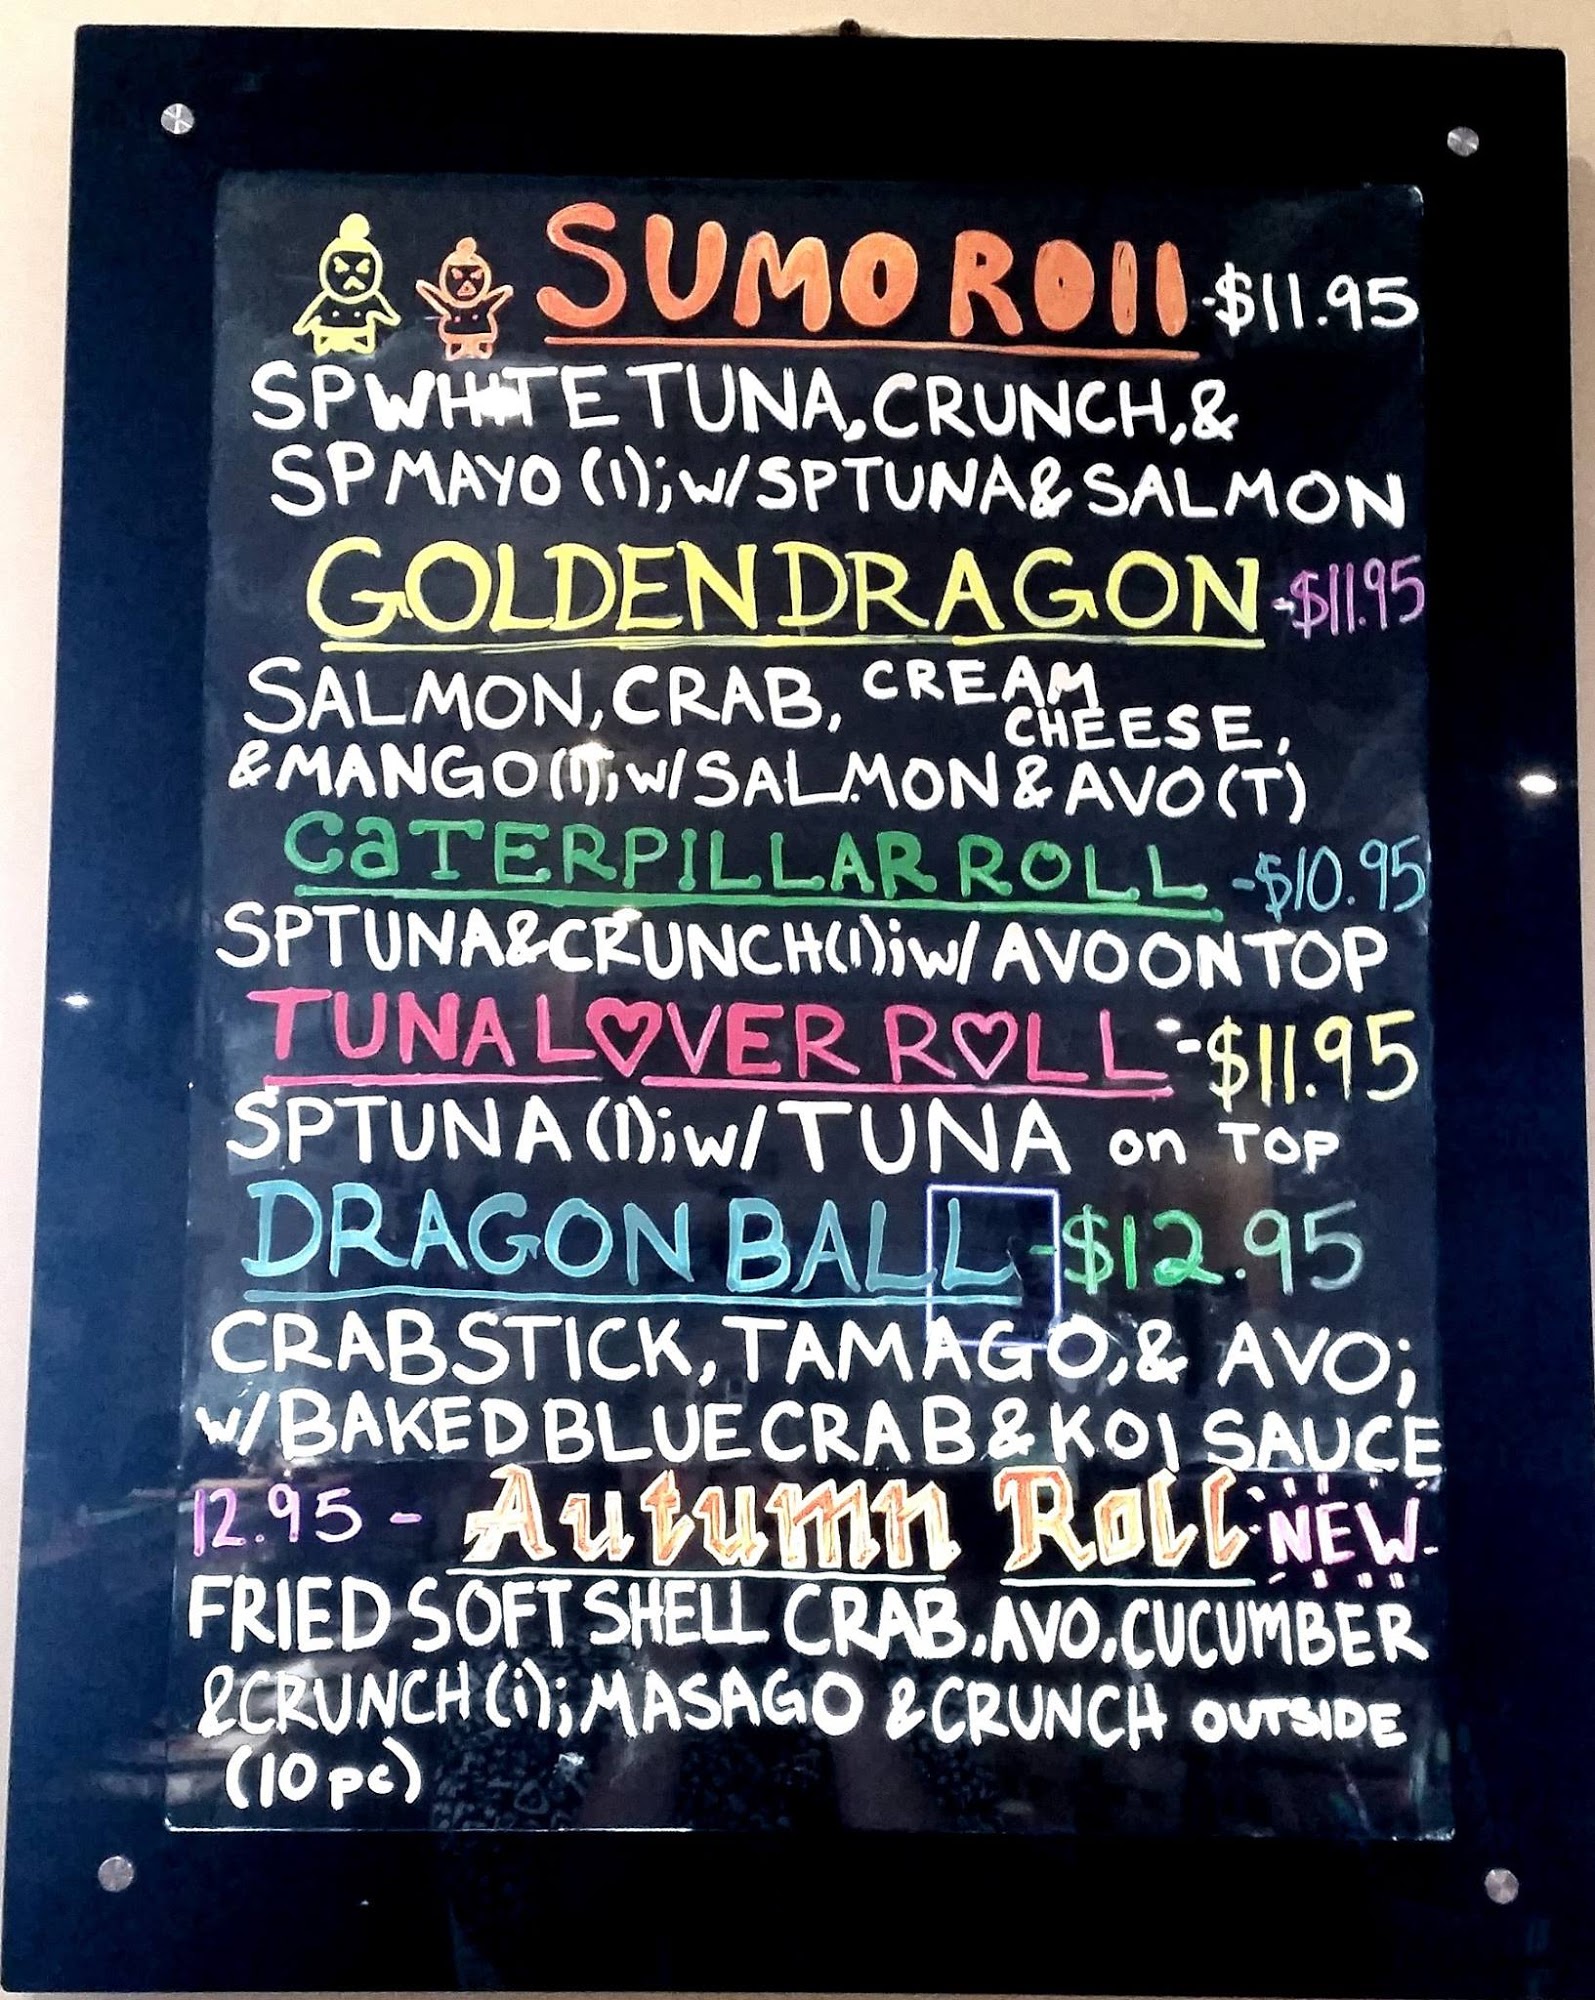 SUMO ROll -$11.95
SP WHITE TUNA, CRUNCH, &
SP MAYO (I); w/ SPTUNA & SALMON
GOLDEN DRAGON -$11.95
SALMON, CRAB, CREAM CHEESE,
& MANGO (I); w/ SALMON & AVO (T)
CaTERPILLAR ROLL -$10.95
SPTUNA & CRUNCH (I); w/ AVO ON TOP
TUNA L♡VER R♡LL -$11.95
SPTUNA (I); w/ TUNA on TOP
DRAGON BALL -$12.95
CRABSTICK, TAMAGO, & AVO;
w/ BAKED BLUE CRAB & KOI SAUCE
12.95 - Autumn Roll NEW
FRIED SOFT SHELL CRAB, AVO, CUCUMBER
& CRUNCH (i); MASAGO & CRUNCH OUTSIDE
(10 pc)